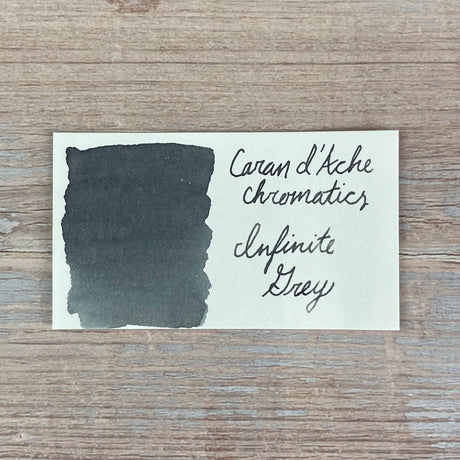 Caran d'Ache
chromatics
Infinite
Grey